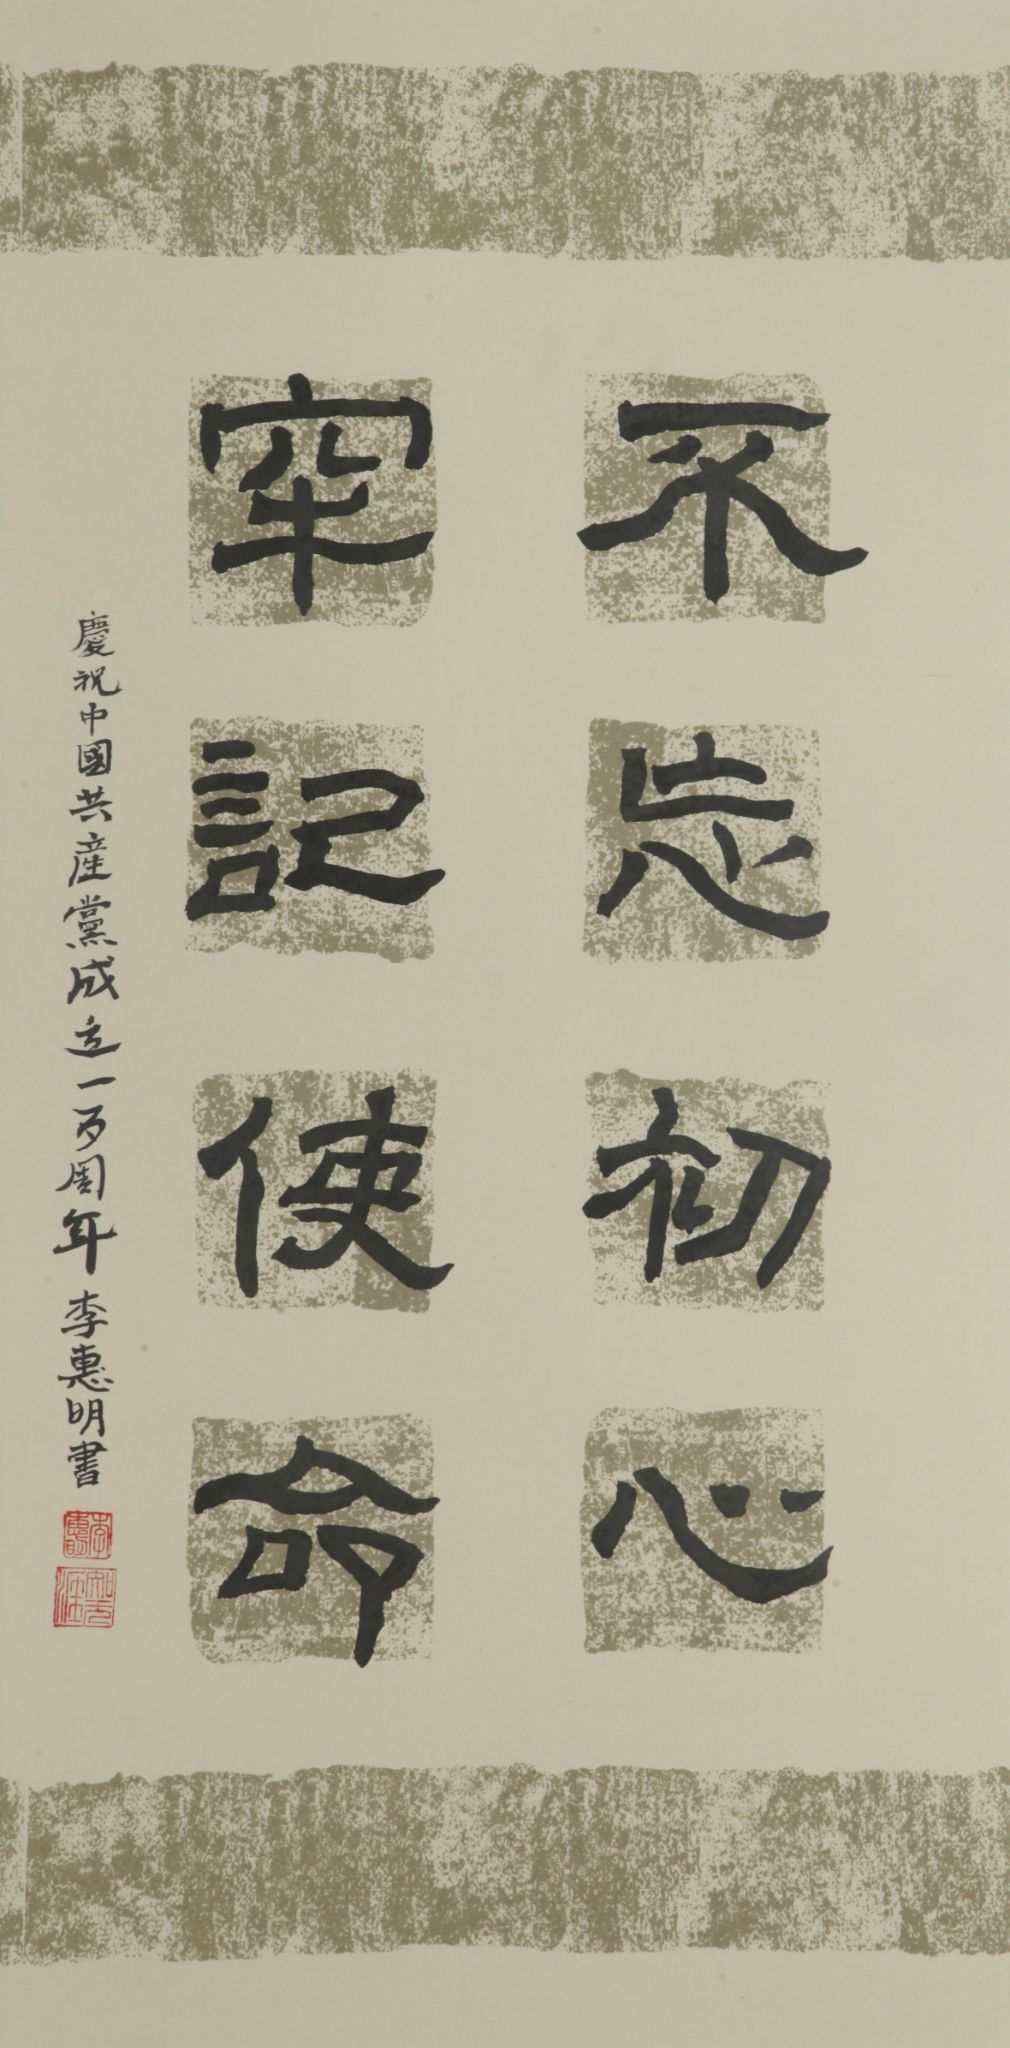 不忘初心
牢記使命
慶祝中國共產黨成立一百周年 李惠明書